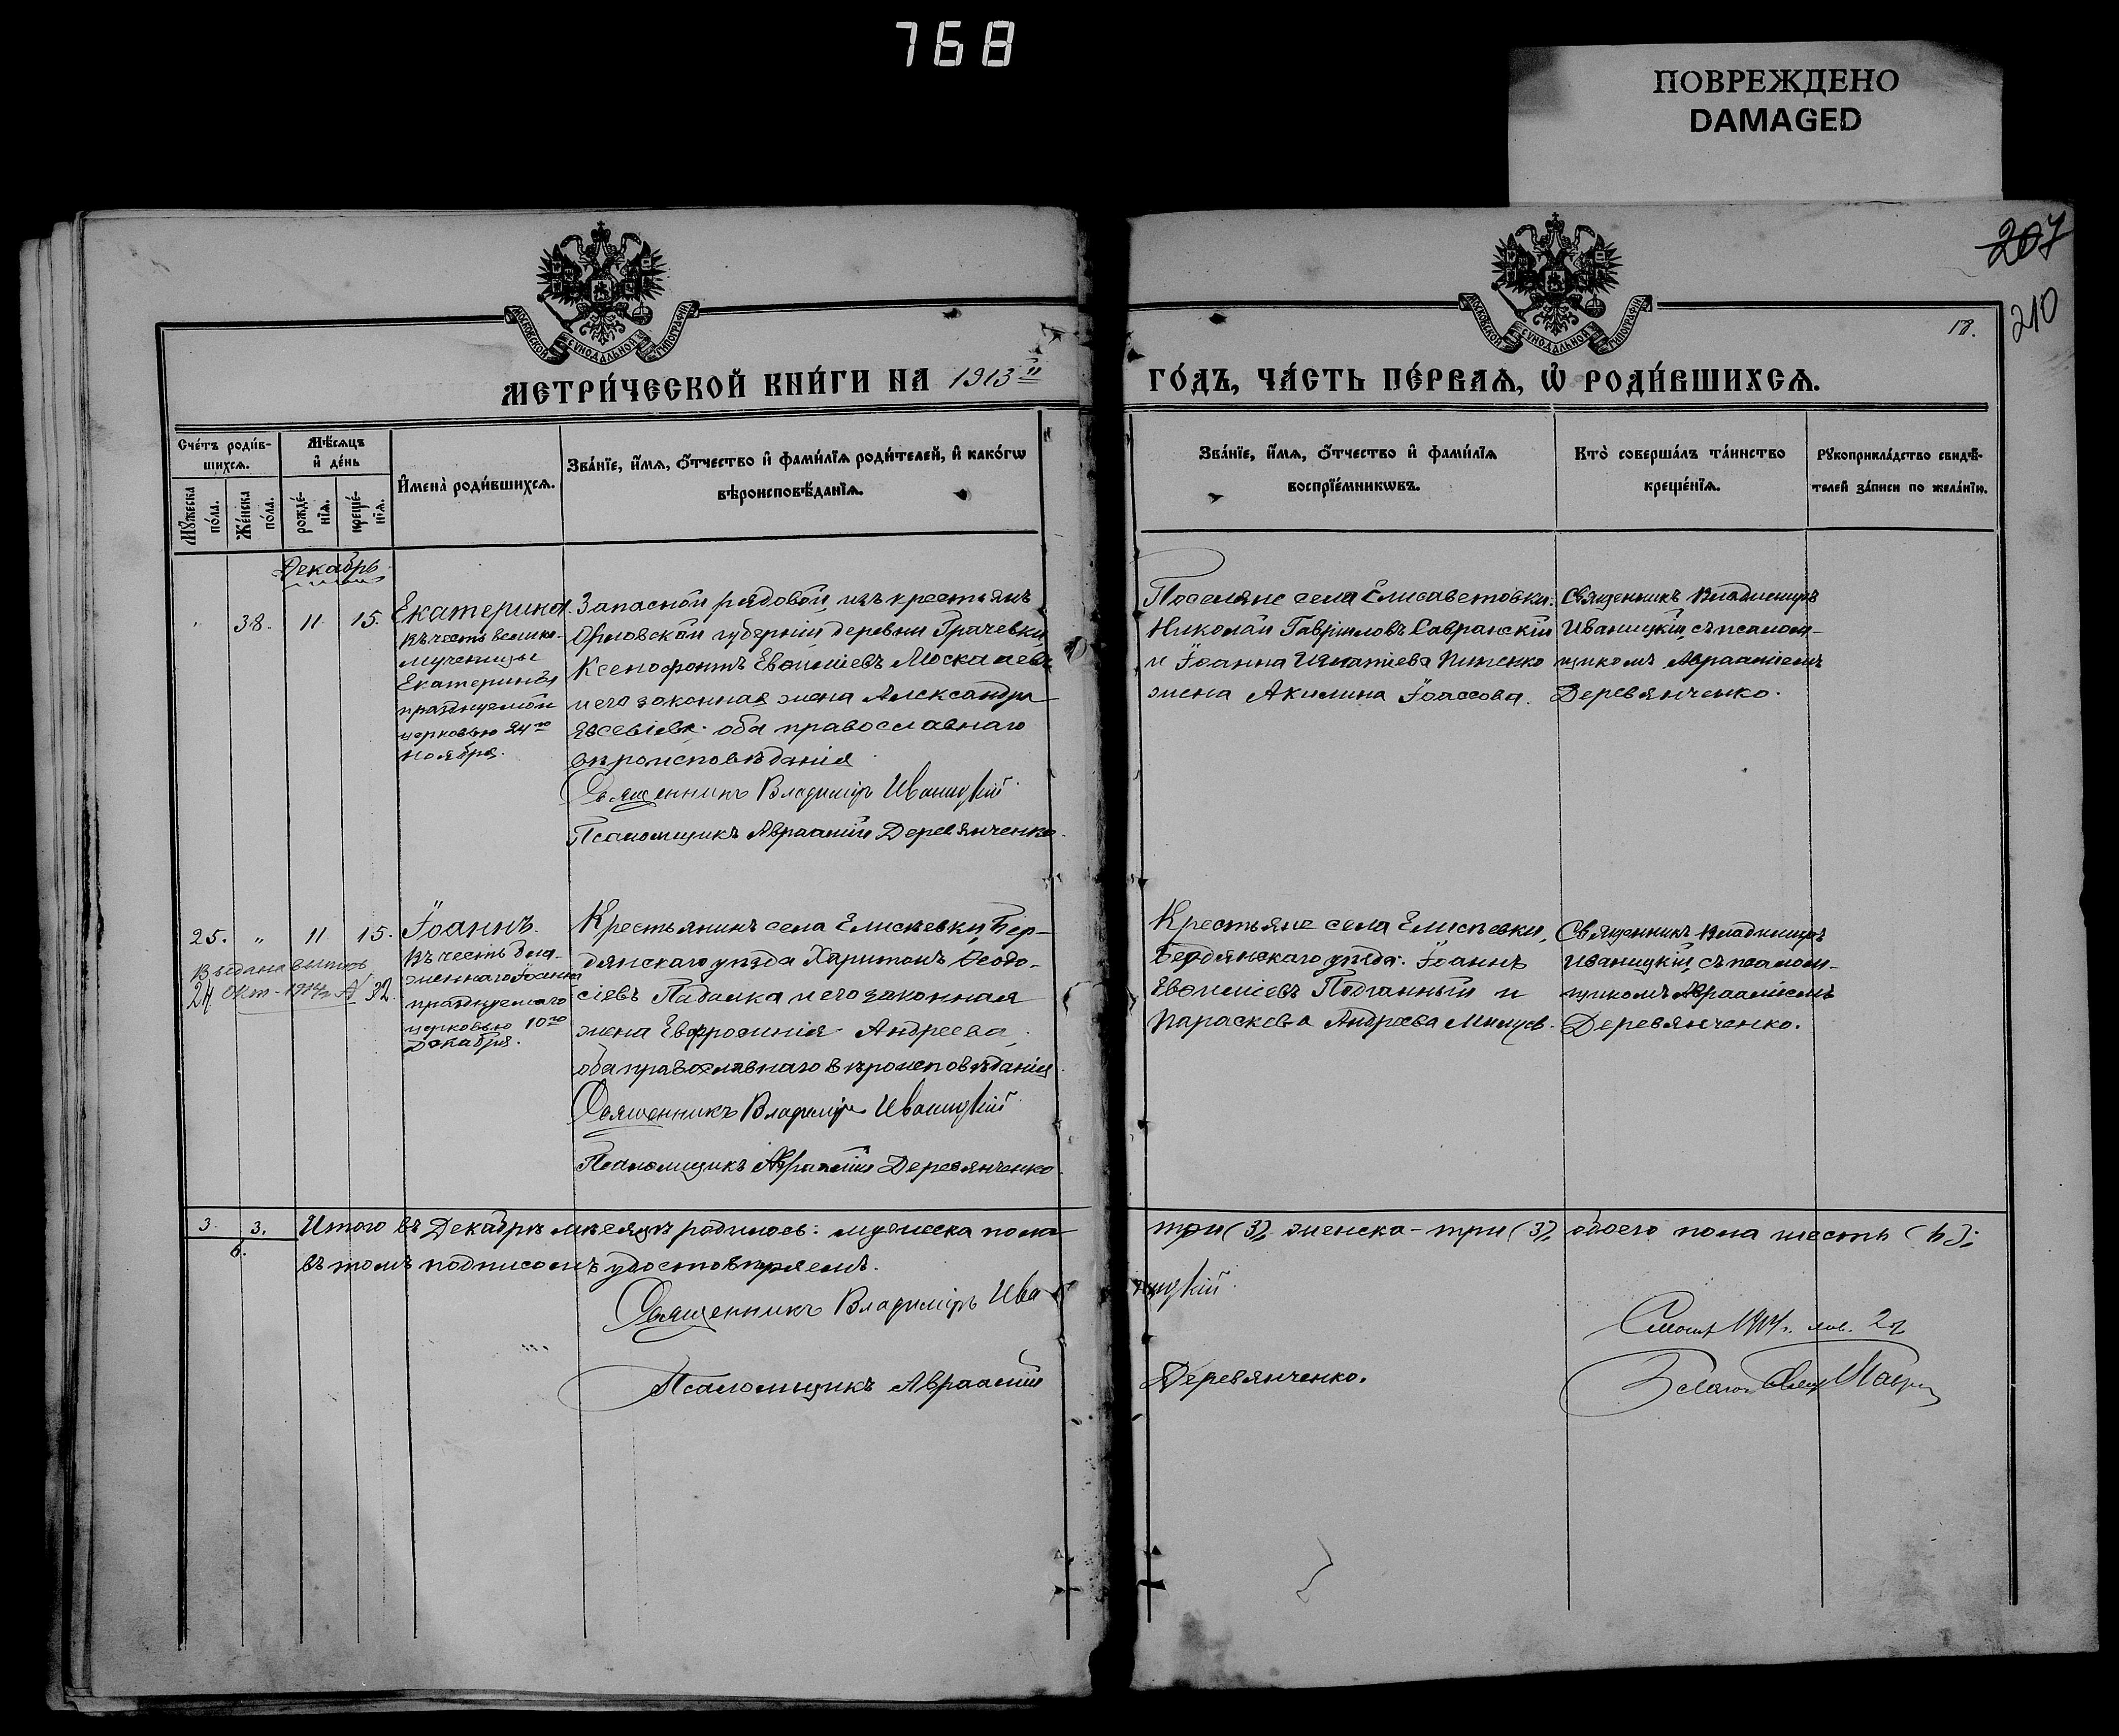 768
ПОВРЕЖДЕНО
DAMAGED
207
210
18.
МОСКОВСКОЙ СѴНОДАЛЬНОЙ ТИПОГРАФІИ
МОСКОВСКОЙ СѴНОДАЛЬНОЙ ТИПОГРАФІИ
МЕТРИ́ЧЕСКОЙ КНИ́ГИ НА 1913й ГО́ДЪ, ЧА́СТЬ ПЕ́РВАѦ, Ѡ҆ РОДИ́ВШИХСѦ.
Сче́тъ роди́в-
шихсѧ.
Мꙋ́жеска по́ла.
Же́нска по́ла.
Мѣ́сѧцъ
и҆ де́нь
рожде́-
нїѧ.
креще́-
нїѧ.
И҆мена̀ роди́вшихсѧ.
Зва́нїе, и҆́мѧ, ѻ҆́тчество и҆ фами́лїѧ роди́телей, и҆ како́гѡ
вѣроисповѣ́данїѧ.
Зва́нїе, и҆́мѧ, ѻ҆́тчество и҆ фами́лїѧ
воспрїе́мникѡвъ.
Кто̀ соверша́лъ та́инство
креще́нїѧ.
Рꙋкоприкла́дство свидѣ́-
телей за́писи по жела́нїю.
Декабрь
38. 11. 15.
Екатерина.
Въ честь велико-
мученицы
Екатерины
празднуемой
церковью 24го
ноября.
Запасной рядовой, изъ крестьянъ
Орловской губерніи деревни Грачевки
Ксенофонтъ Евѳиміевъ Москалевъ
и его законная жена Александра
Евсевіева. оба православнаго
вѣроисповѣданія
Священникъ Владиміръ Иваницкій
Псаломщикъ Авраамій Деревянченко.
Поселяне села Елисаветовки:
Николай Гавріиловъ Савранскій
и Іоанна Игнатіева
жена Акилина
Священникъ Владиміръ
Иваницкій съ псалом-
щикомъ Авраміемъ
Деревянченко.
25. „ 11 15.
Выдана выпись
24 Окт. 1914 г. № 32.
Іоаннъ.
Въ честь бла-
женнаго Іоанна
празднуемаго
церковью 10го
Декабря.
Крестьянинъ села Елисѣевки, Бер-
дянскаго уѣзда Харитонъ Ѳеодо-
сіевъ Падалка и его законная
жена Евфросинія Андреева,
оба православнаго вѣроисповѣданія.
Священникъ Владиміръ Иваницкій
Псаломщикъ Авраамій Деревянченко.
Крестьяне села Елисѣевки,
Бердянскаго уѣзда: Іоаннъ
Евѳиміевъ Подганный и
Параскева Андреева
Священникъ Владиміръ
Иваницкій, съ псалом-
щикомъ Авраамiемъ
Деревянченко.
3 3.
6.
Итого въ Декабрѣ мѣсяцѣ родилось: мужеска пола три (3), женска - три (3), обоего пола шесть (6);
въ томъ подписомъ удостовѣряемъ.
Священникъ Владиміръ Иваницкій
Псаломщикъ Авраамій Деревянченко.
1914 г.